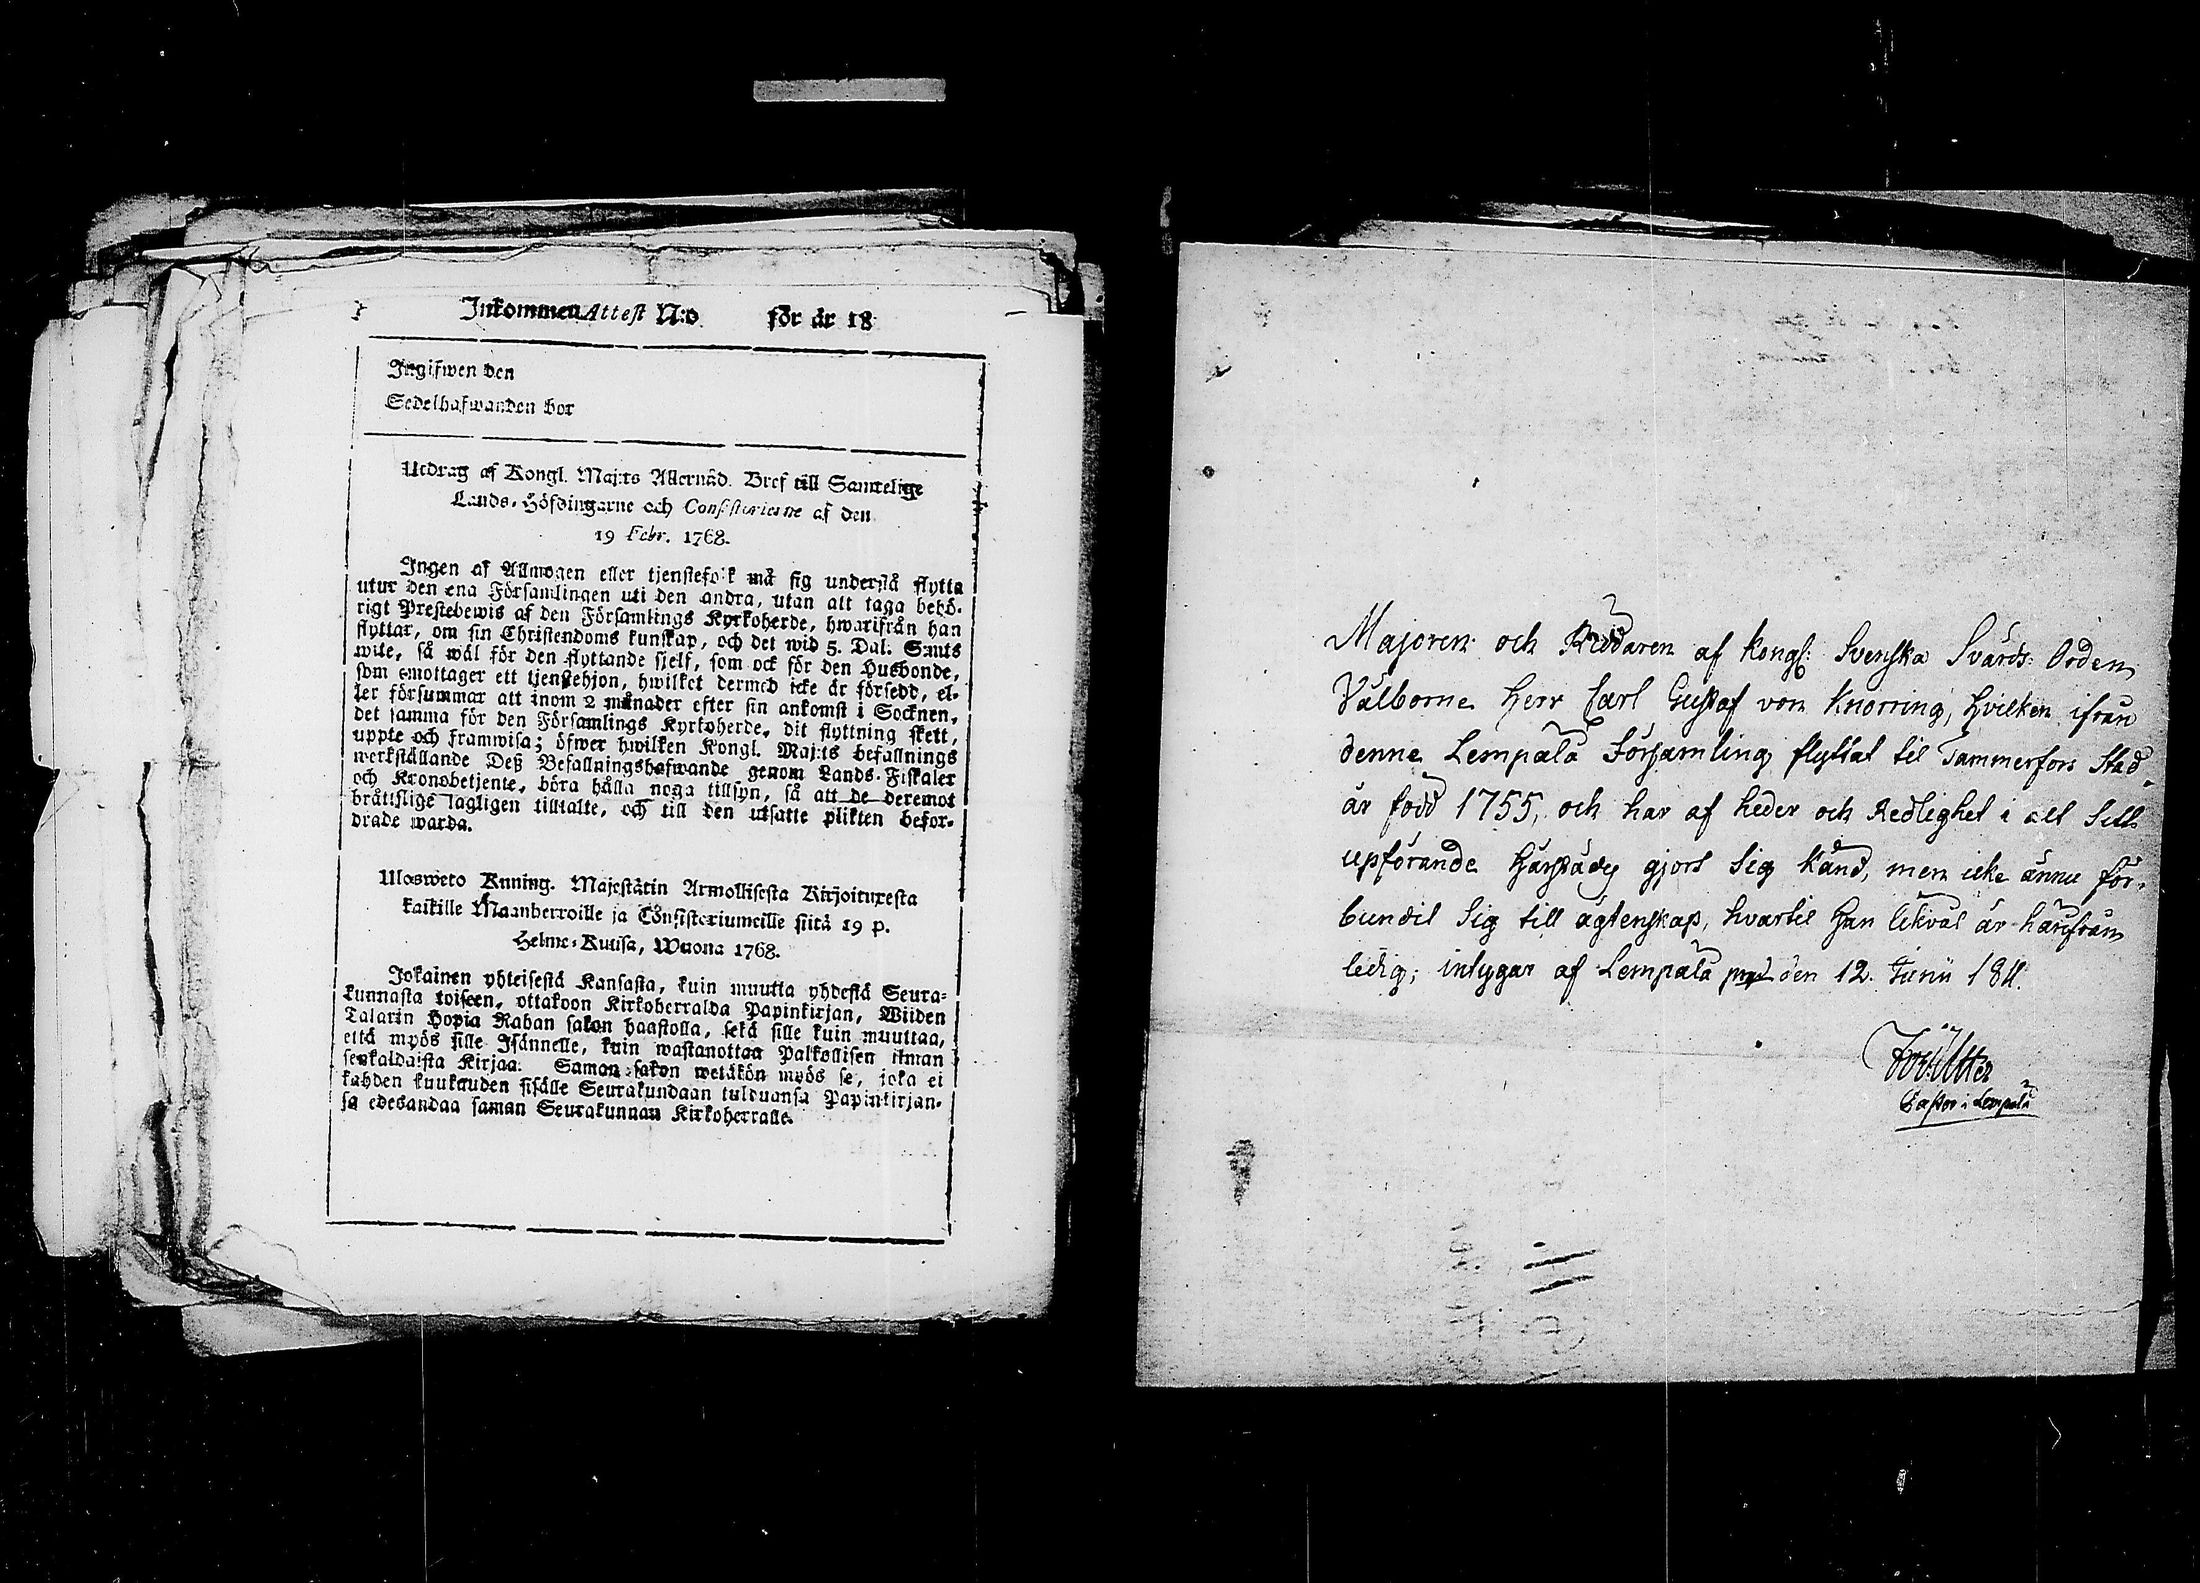 Inkommen Attest N:o för år 18
Ingifwen den
Sedelhafwanden bor
Utdrag af Kongl. Maj:ts Allernåd. Bref till Samtelige
Lands-Höfdingarne och Consistorierne af den
19 Febr. 1768.
Ingen af Allmogen eller tjenstefolk må sig understå flytta
utur den ena Församlingen uti den andra, utan att taga behö-
rigt Prestebewis af den Församlings Kyrkoherde, hwarifrån han
flyttar, om sin Christendoms kunskap, och det wid 5. Dal. Smts
wite, så wäl för den flyttande sjelf, som ock för den Husbonde,
som emottager ett tjenstehjon, hwilket dermed icke är försedd, el-
ler försummar att inom 2 månader efter sin ankomst i Socknen,
det samma för den Församlings Kyrkoherde, dit flyttning skett,
uppte och framwisa; öfwer hwilken Kongl. Maj:ts befallnings
werkställande Deß Befallningshafwande genom Lands-Fiskaler
och Kronobetjente, böra hålla noga tillsyn, så att de deremot
bråttslige lagligen tilltalte, och till den utsatte plikten befor-
drade warda.
Ulosweto Kuning. Majestätin Armollisesta Kirjoituxesta
kaikille Maanherroille ja Consistoriumeille siitä 19 p.
Helme-Kuusa, Wuona 1768.
Jokainen yhteisestä Kansasta, kuin muutta yhdestä Seura-
kunnasta toiseen, ottakoon Kirkoherralda Papinkirjan, Wiiden
Talarin Hopia Rahan sakon haastolla, sekä sille kuin muuttaa,
että myös sille Isännelle, kuin wastanottaa Palkollisen ilman
senkaldaista Kirjaa. Saman sakon wetäkön myös se, joka ei
kahden kuukauden sisälle Seurakundaan tulduansa Papinkirjan-
sa edesandaa saman Seurakunnan Kirkoherralle.
Majoren och Riddaren af Kongl: Svenska Svärds Orden
Välborne Herr Carl Gustaf von Knorring, hvilken ifrån
denne Lempälä Församling flyttat til Tammerfors Stad,
är född 1755, och har af heder och Redlighet i alt Sitt
upförande härstädes gjort Sig känd, men icke ännu för-
bundit Sig till ägtenskap, hvartil han likväl är härifrån
ledig; intygar af Lempälä den 12. Junii 1811.
Pastor i Lempälä